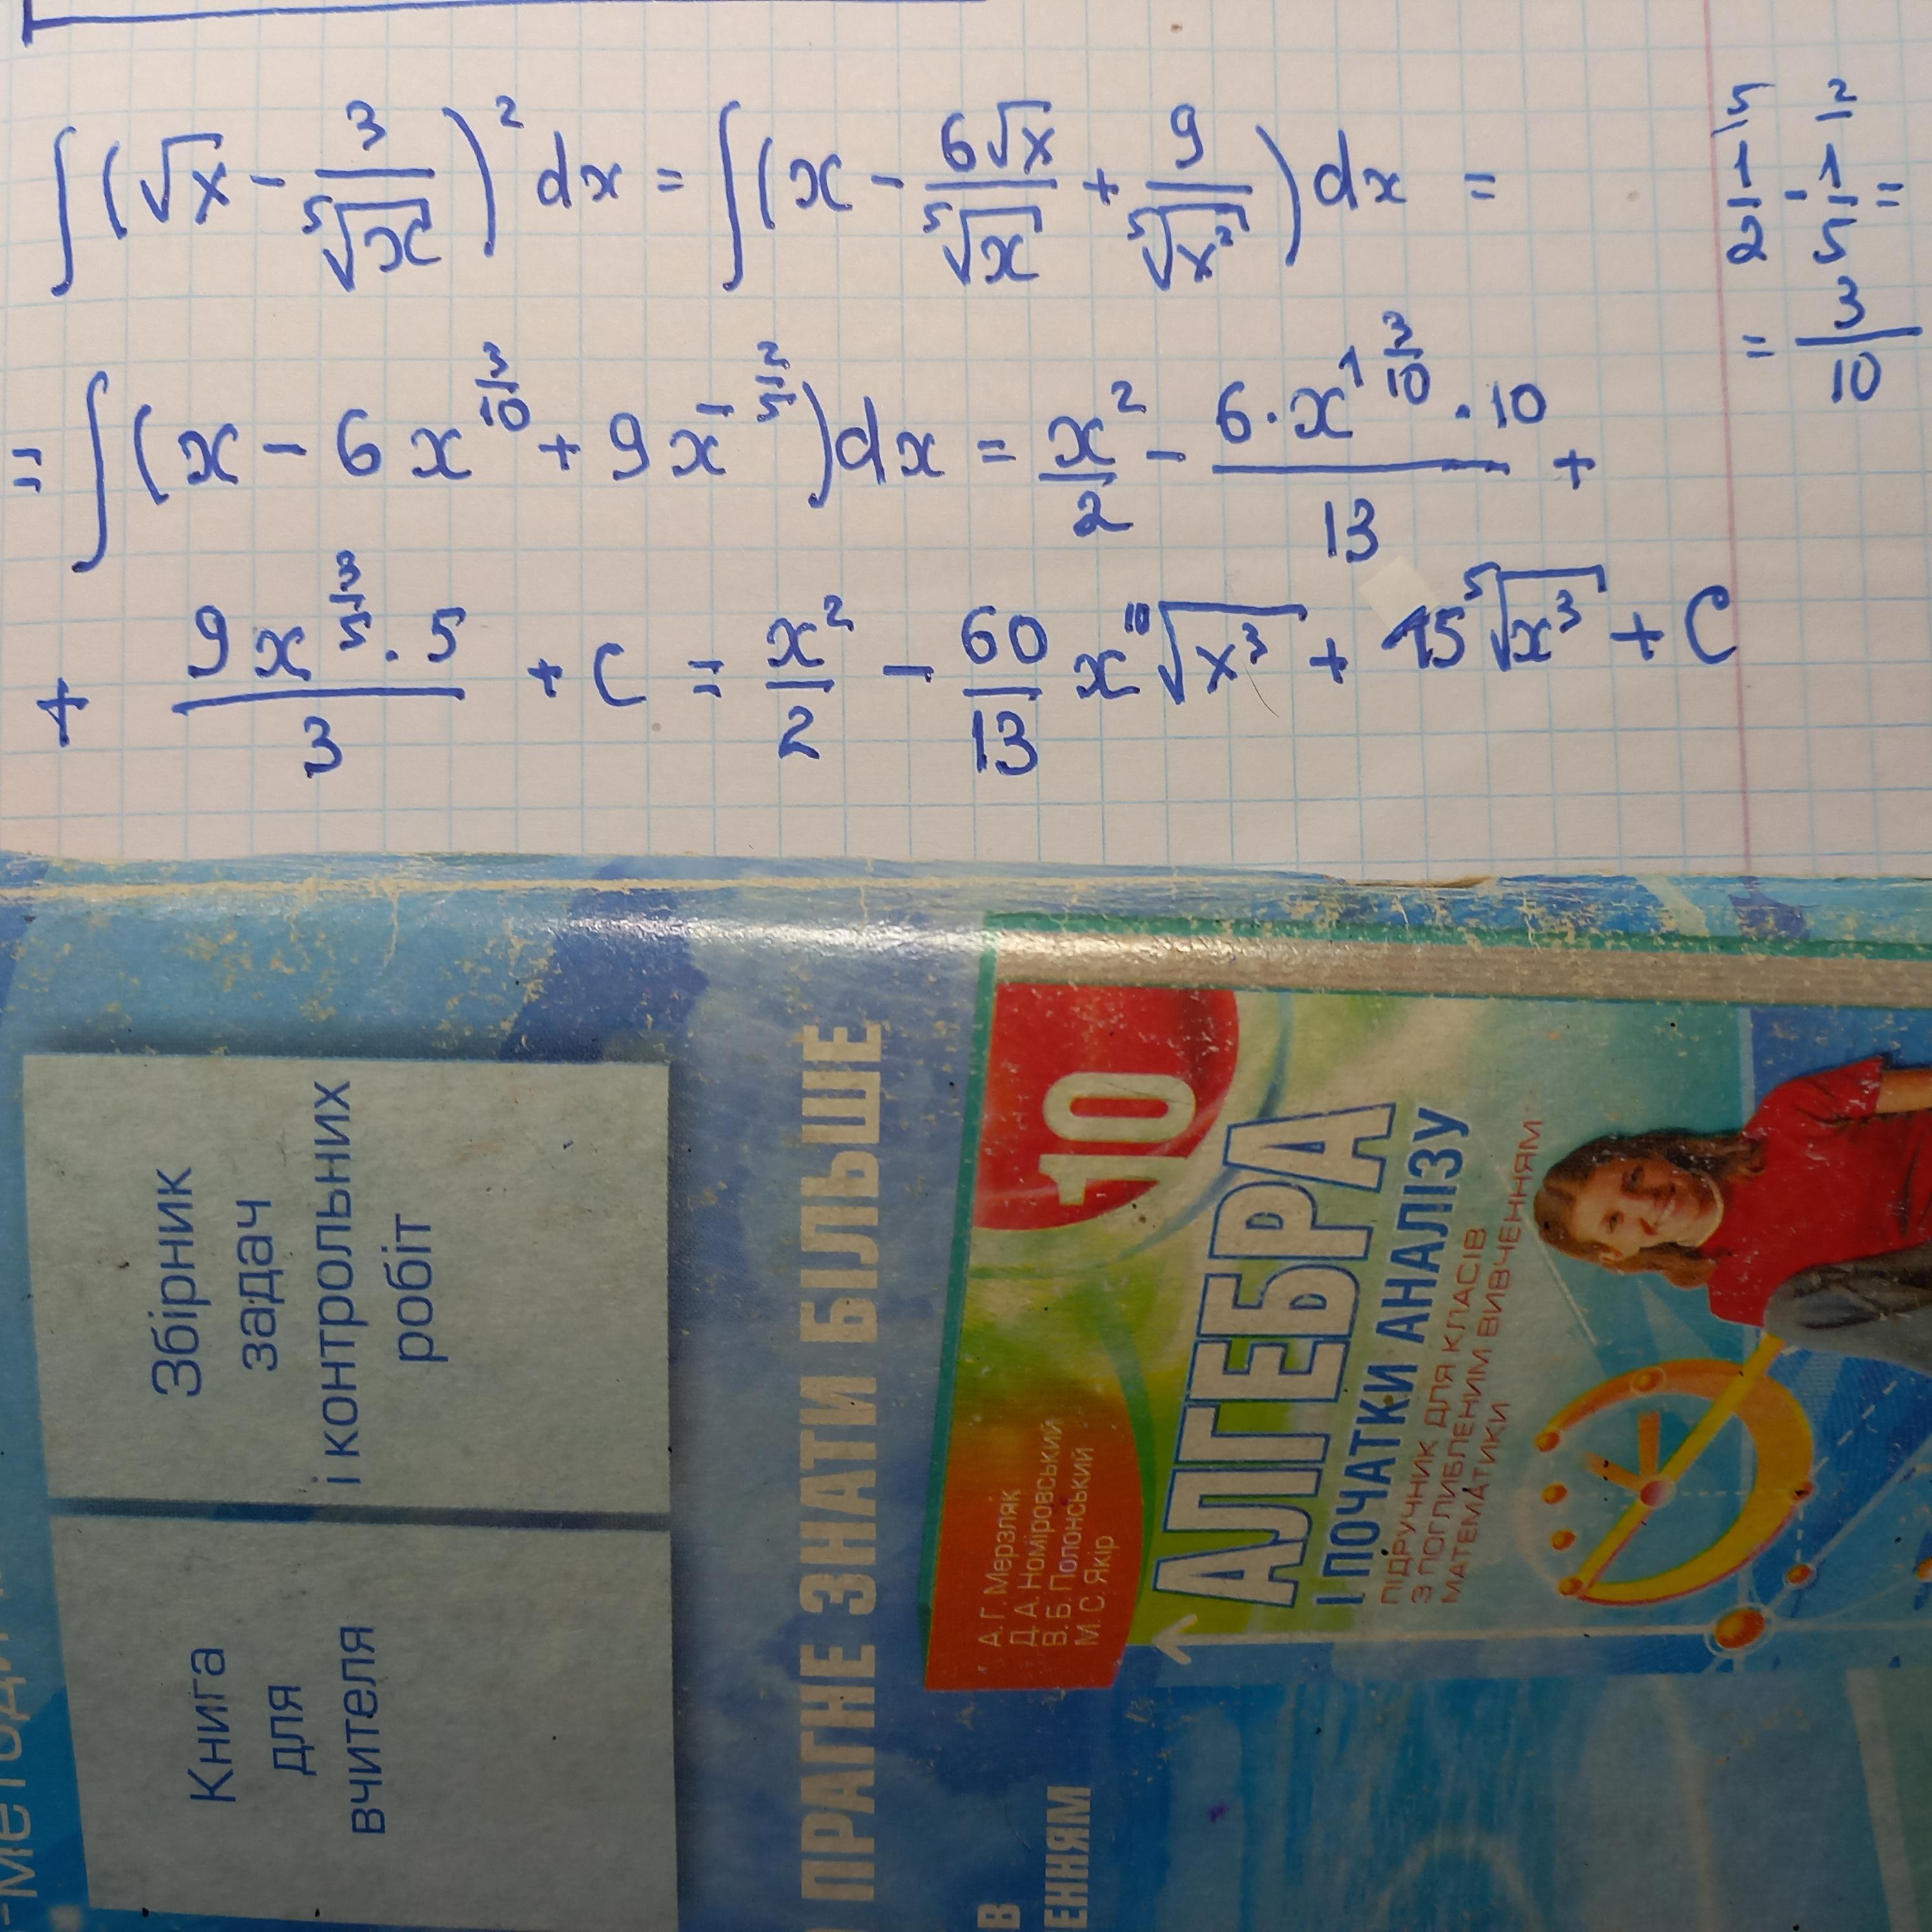 ∫(√x - 3/⁵√x)² dx = ∫(x - 6√x/⁵√x + 9/⁵√x²)dx =
= ∫(x - 6x^(3/10) + 9x^(-2/5))dx = x²/2 - 6·x^(1 3/10)·10/13 +
+ 9x^(3/5)·5/3 + C = x²/2 - 60/13 x ¹⁰√x³ + 15 ⁵√x³ + C
5 2
1/2 - 1/5 =
= 3/10
Збірник
задач
і контрольних
робіт
Книга
для
вчителя
ПРАГНЕ ЗНАТИ БІЛЬШЕ
В
ЕННЯМ
10
А. Г. Мерзляк
Д. А. Номіровський
В. Б. Полонський
М. С. Якір
АЛГЕБРА
І ПОЧАТКИ АНАЛІЗУ
ПІДРУЧНИК ДЛЯ КЛАСІВ
З ПОГЛИБЛЕНИМ ВИВЧЕННЯМ
МАТЕМАТИКИ